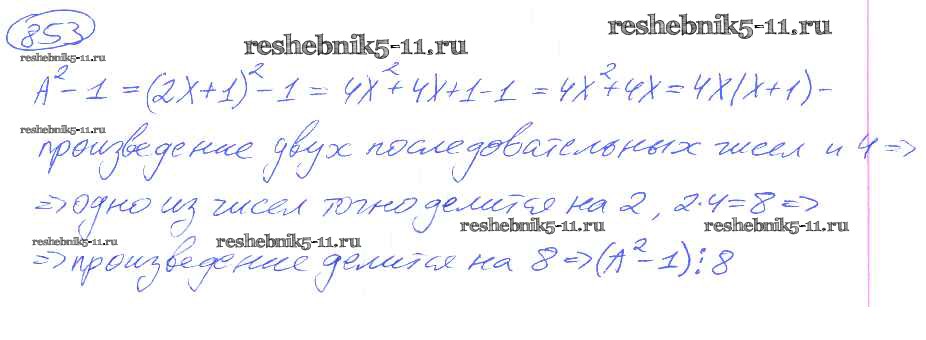 853
reshebnik5-11.ru
reshebnik5-11.ru
reshebnik5-11.ru
A² - 1 = (2X+1)² - 1 = 4X² + 4X + 1 - 1 = 4X² + 4X = 4X(X+1) -
reshebnik5-11.ru
произведение двух последовательных чисел и 4 =>
=> одно из чисел точно делится на 2, 2·4=8 =>
reshebnik5-11.ru
reshebnik5-11.ru
reshebnik5-11.ru
reshebnik5-11.ru
=> произведение делится на 8 => (A² - 1)⋮8